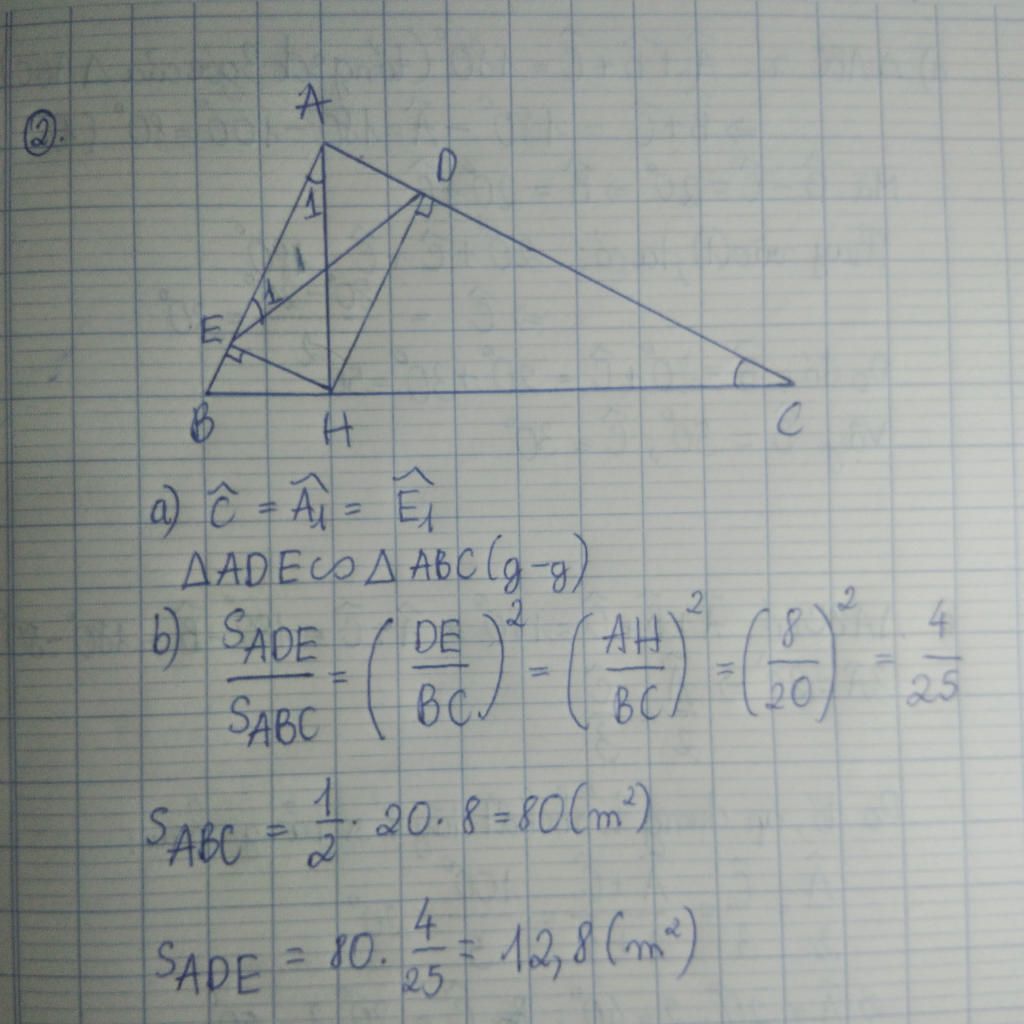 2.
A
D
1
1
1
E
B H C
a) Ĉ = Â₁ = Ê₁
ΔADE ∽ ΔABC (g-g)
b) S_ADE / S_ABC = (DE / BC)² = (AH / BC)² = (8 / 20)² = 4 / 25
S_ABC = 1/2 . 20 . 8 = 80 (m²)
S_ADE = 80 . 4/25 = 12,8 (m²)